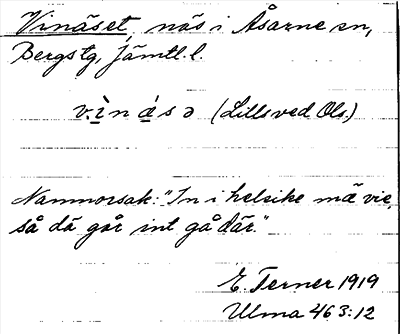 Vinäset, näs i Åsarne sn,
Bergs tg, Jämtl. l.
v.ìnása (Lillsved Ols.)
Namnorsak: "In i helsike mä vie,
så dä går int gå där."
E. Terner 1919
Ulma 463:12